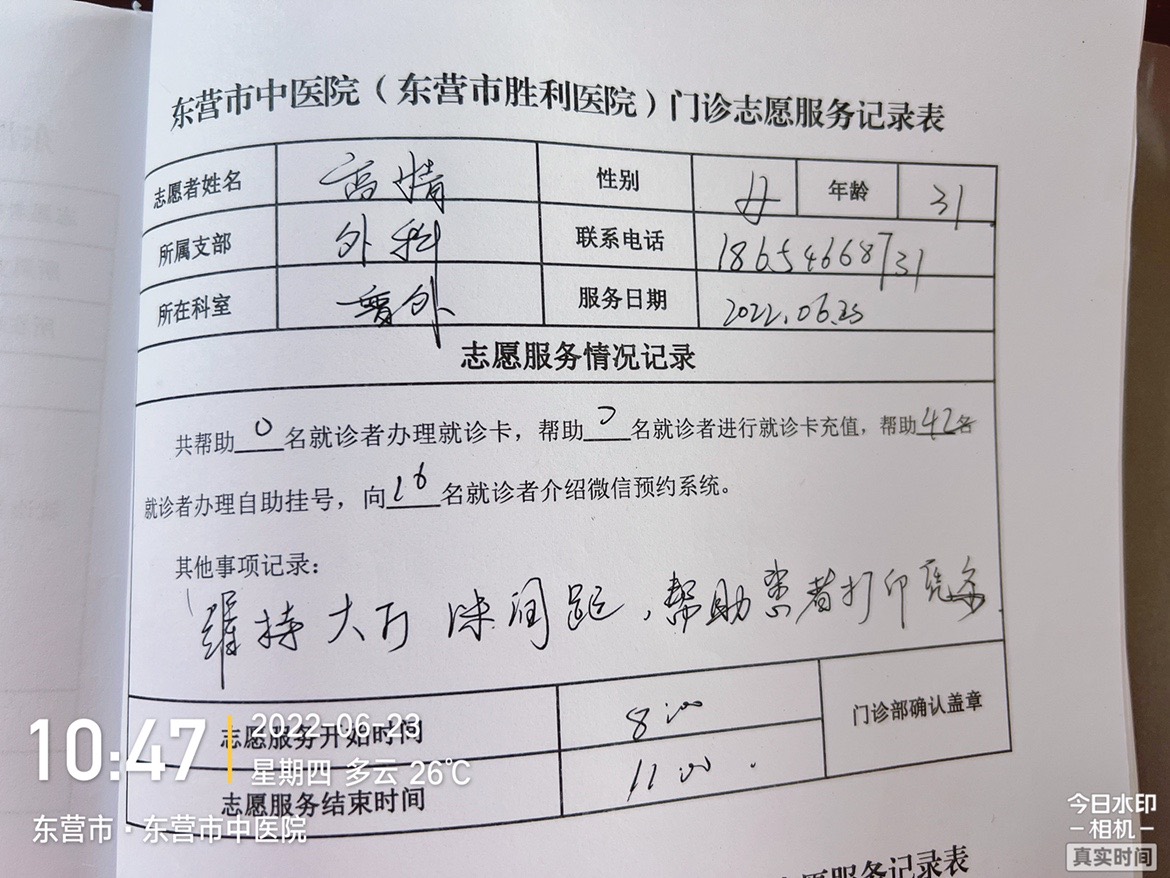 东营市中医院（东营市胜利医院）门诊志愿服务记录表
志愿者姓名 高情 性别 女 年龄 31
所属支部 外科 联系电话 18654668731
所在科室 普外 服务日期 2022.06.23
志愿服务情况记录
共帮助0名就诊者办理就诊卡，帮助0名就诊者进行就诊卡充值，帮助42名
就诊者办理自助挂号，向16名就诊者介绍微信预约系统。
其他事项记录：
维持大厅 间距，帮助患者打印
志愿服务开始时间 8:00 门诊部确认盖章
志愿服务结束时间 11:00
10:47
2022-06-23
星期四 多云 26℃
东营市·东营市中医院
今日水印
-相机-
真实时间
服务记录表